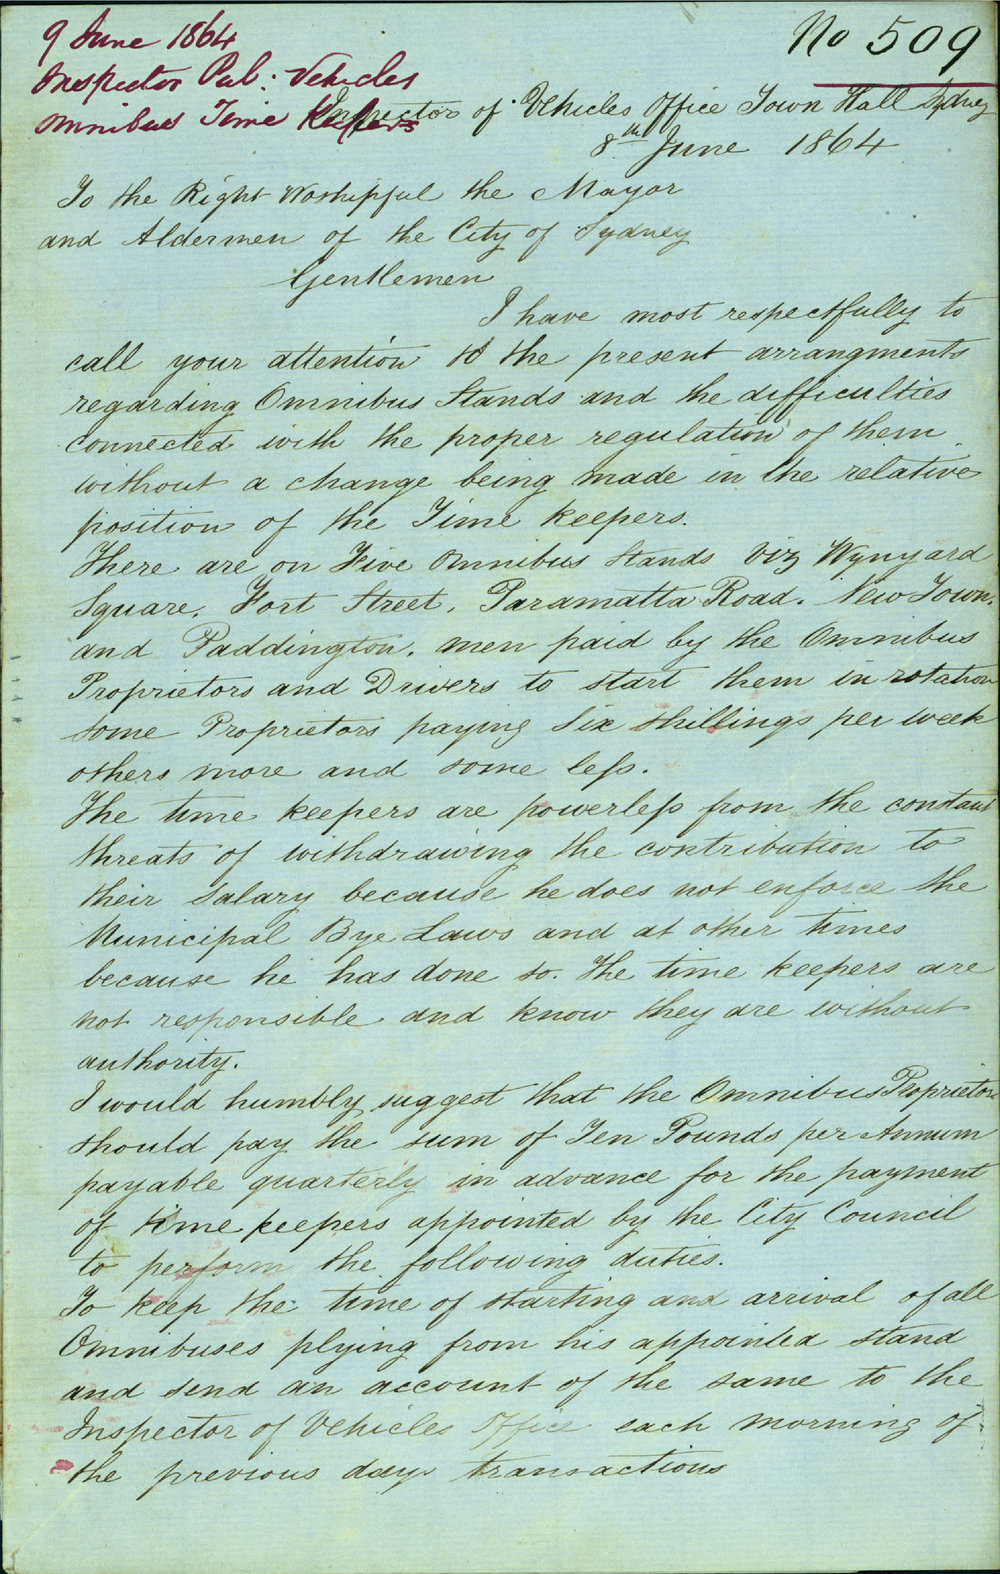 9 June 1864
No 509
Inspector Pub: Vehicles
Omnibus Time Keepers
Inspector of Vehicles Office Town Hall Sydney
8th June 1864
To the Right Worshipful the Mayor
and Aldermen of the City of Sydney
Gentlemen
I have most respectfully to
call your attention to the present arrangments
regarding Omnibus Stands and the difficulties
connected with the proper regulation of them
without a change being made in the relative
position of the Time keepers.
There are on Five Omnibus Stands Viz Wynyard
Square, Fort Street, Paramatta Road, New Town,
and Paddington, men paid by the Omnibus
Proprietors and Drivers to start them in rotation
some Proprietors paying Six Shillings per week
others more and some less.
The time keepers are powerless from the constant
threats of withdrawing the contribution to
their salary because he does not enforce the
Municipal Bye Laws and at other times
because he has done so. The time keepers are
not responsible and know they are without
authority.
I would humbly suggest that the Omnibus Proprietors
should pay the sum of Ten Pounds per Annum
payable quarterly in advance for the payment
of time keepers appointed by the City Council
to perform the following duties.
To keep the time of starting and arrival of all
Omnibuses plying from his appointed stand
and send an account of the same to the
Inspector of Vehicles Office each morning of
the previous days transactions